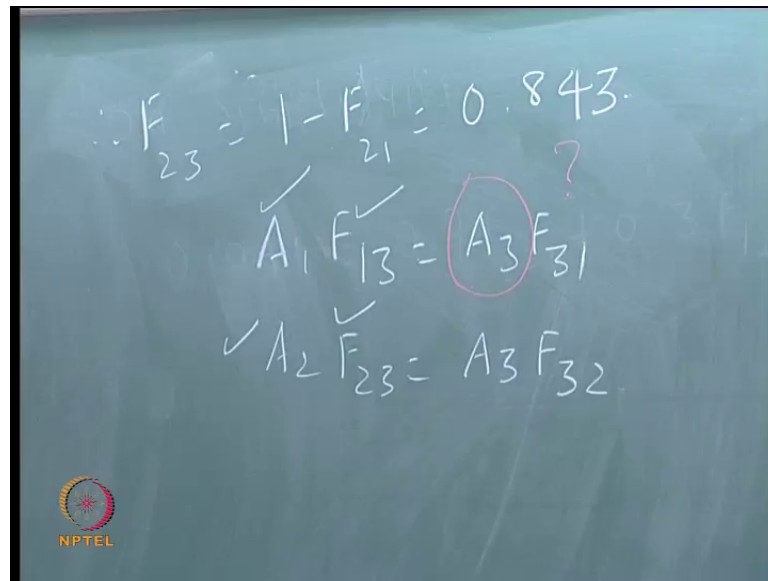 ∴ F₂₃ = 1 - F₂₁ = 0.843.
?
A₁ F₁₃ = A₃ F₃₁
A₂ F₂₃ = A₃ F₃₂
NPTEL